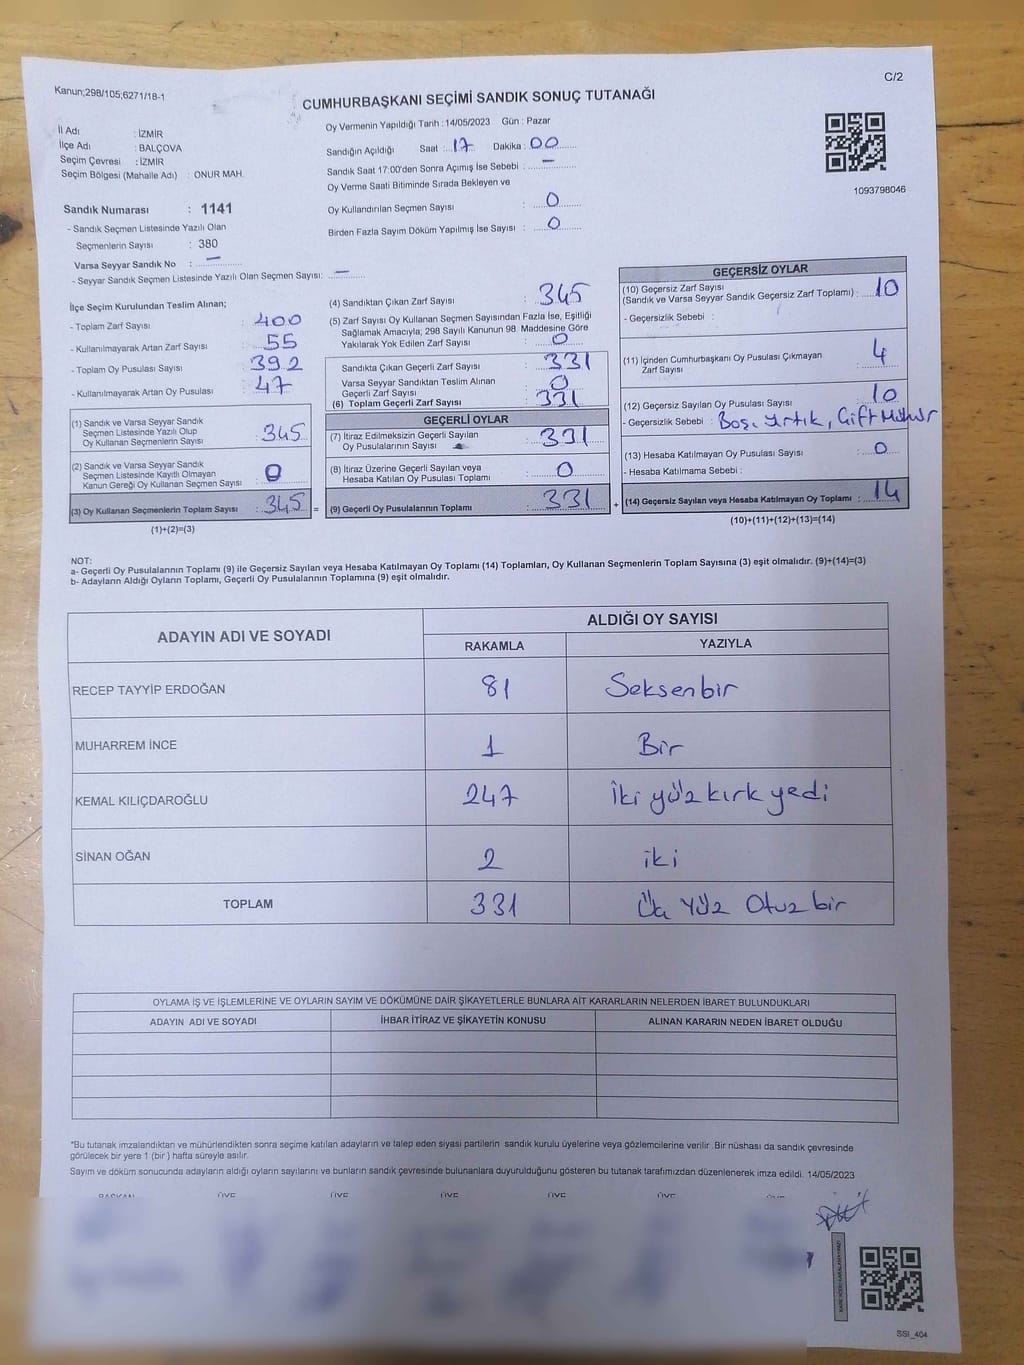 Kanun;298/105;6271/18-1
C/2
CUMHURBAŞKANI SEÇİMİ SANDIK SONUÇ TUTANAĞI
İl Adı : İZMİR
İlçe Adı : BALÇOVA
Seçim Çevresi : İZMİR
Seçim Bölgesi (Mahalle Adı) : ONUR MAH.
Sandık Numarası : 1141
- Sandık Seçmen Listesinde Yazılı Olan
Seçmenlerin Sayısı : 380
Varsa Seyyar Sandık No : —
- Seyyar Sandık Seçmen Listesinde Yazılı Olan Seçmen Sayısı: —
Oy Vermenin Yapıldığı Tarih : 14/05/2023 Gün : Pazar
Sandığın Açıldığı Saat : 17 Dakika : 00
Sandık Saat 17:00'den Sonra Açımış İse Sebebi : —
Oy Verme Saati Bitiminde Sırada Bekleyen ve
Oy Kullandırılan Seçmen Sayısı : 0
Birden Fazla Sayım Döküm Yapılmış İse Sayısı : 0
1093798046
İlçe Seçim Kurulundan Teslim Alınan;
- Toplam Zarf Sayısı : 400
- Kullanılmayarak Artan Zarf Sayısı : 55
- Toplam Oy Pusulası Sayısı : 392
- Kullanılmayarak Artan Oy Pusulası : 47
(1) Sandık ve Varsa Seyyar Sandık
Seçmen Listesinde Yazılı Olup
Oy Kullanan Seçmenlerin Sayısı : 345
(2) Sandık ve Varsa Seyyar Sandık
Seçmen Listesinde Kayıtlı Olmayan
Kanun Gereği Oy Kullanan Seçmen Sayısı : 0
(3) Oy Kullanan Seçmenlerin Toplam Sayısı : 345 =
(1)+(2)=(3)
(4) Sandıktan Çıkan Zarf Sayısı : 345
(5) Zarf Sayısı Oy Kullanan Seçmen Sayısından Fazla İse, Eşitliği
Sağlamak Amacıyla; 298 Sayılı Kanunun 98. Maddesine Göre
Yakılarak Yok Edilen Zarf Sayısı : 0
Sandıkta Çıkan Geçerli Zarf Sayısı : 331
Varsa Seyyar Sandıktan Teslim Alınan
Geçerli Zarf Sayısı : 0
(6) Toplam Geçerli Zarf Sayısı : 331
GEÇERLİ OYLAR
(7) İtiraz Edilmeksizin Geçerli Sayılan
Oy Pusulalarının Sayısı : 331
(8) İtiraz Üzerine Geçerli Sayılan veya
Hesaba Katılan Oy Pusulası Toplamı : 0
(9) Geçerli Oy Pusulalarının Toplamı : 331 +
GEÇERSİZ OYLAR
(10) Geçersiz Zarf Sayısı
(Sandık ve Varsa Seyyar Sandık Geçersiz Zarf Toplamı) : 10
- Geçersizlik Sebebi :
(11) İçinden Cumhurbaşkanı Oy Pusulası Çıkmayan
Zarf Sayısı : 4
(12) Geçersiz Sayılan Oy Pusulası Sayısı : 10
- Geçersizlik Sebebi : Boş, Yırtık, Çift Mühür
(13) Hesaba Katılmayan Oy Pusulası Sayısı : 0
- Hesaba Katılmama Sebebi :
(14) Geçersiz Sayılan veya Hesaba Katılmayan Oy Toplamı : 14
(10)+(11)+(12)+(13)=(14)
NOT:
a- Geçerli Oy Pusulalarının Toplamı (9) ile Geçersiz Sayılan veya Hesaba Katılmayan Oy Toplamı (14) Toplamları, Oy Kullanan Seçmenlerin Toplam Sayısına (3) eşit olmalıdır. (9)+(14)=(3)
b- Adayların Aldığı Oyların Toplamı, Geçerli Oy Pusulalarının Toplamına (9) eşit olmalıdır.
ADAYIN ADI VE SOYADI
ALDIĞI OY SAYISI
RAKAMLA YAZIYLA
RECEP TAYYİP ERDOĞAN 81 Seksenbir
MUHARREM İNCE 1 Bir
KEMAL KILIÇDAROĞLU 247 İki yüz kırk yedi
SİNAN OĞAN 2 iki
TOPLAM 331 Üç Yüz Otuz bir
OYLAMA İŞ VE İŞLEMLERİNE VE OYLARIN SAYIM VE DÖKÜMÜNE DAİR ŞİKAYETLERLE BUNLARA AİT KARARLARIN NELERDEN İBARET BULUNDUKLARI
ADAYIN ADI VE SOYADI İHBAR İTİRAZ VE ŞİKAYETİN KONUSU ALINAN KARARIN NEDEN İBARET OLDUĞU
*Bu tutanak imzalandıktan ve mühürlendikten sonra seçime katılan adayların ve talep eden siyasi partilerin sandık kurulu üyelerine veya gözlemcilerine verilir. Bir nüshası da sandık çevresinde
görülecek bir yere 1 (bir) hafta süreyle asılır.
Sayım ve döküm sonucunda adayların aldığı oyların sayılarını ve bunların sandık çevresinde bulunanlara duyurulduğunu gösteren bu tutanak tarafımızdan düzenlenerek imza edildi. 14/05/2023
BAŞKAN ÜYE ÜYE ÜYE ÜYE ÜYE
SSI_404